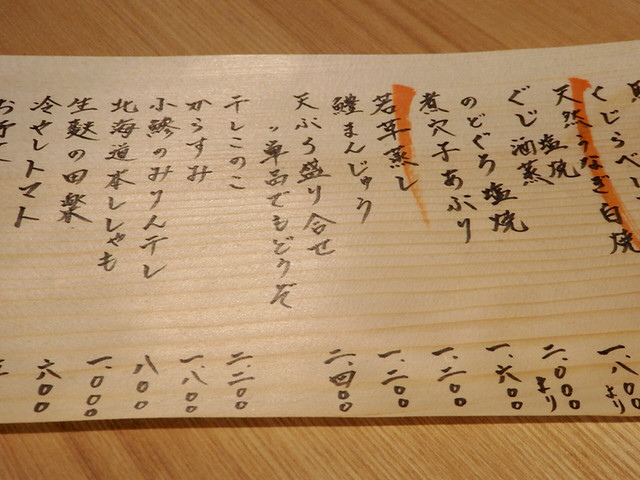 くじらべ
天然うなぎ白焼
塩焼
ぐじ酒蒸
一、八〇〇より
のどぐろ塩焼
二、〇〇〇より
煮穴子あぶり
一、六〇〇
若草蒸し
一、二〇〇
鱧まんじゅう
一、二〇〇
天ぷら盛り合せ
二、四〇〇
〃単品でもどうぞ
干しこのこ
二、二〇〇
からすみ
一、八〇〇
小鯵のみりん干し
八〇〇
北海道本ししゃも
一、〇〇〇
生麩の田楽
六〇〇
冷やしトマト